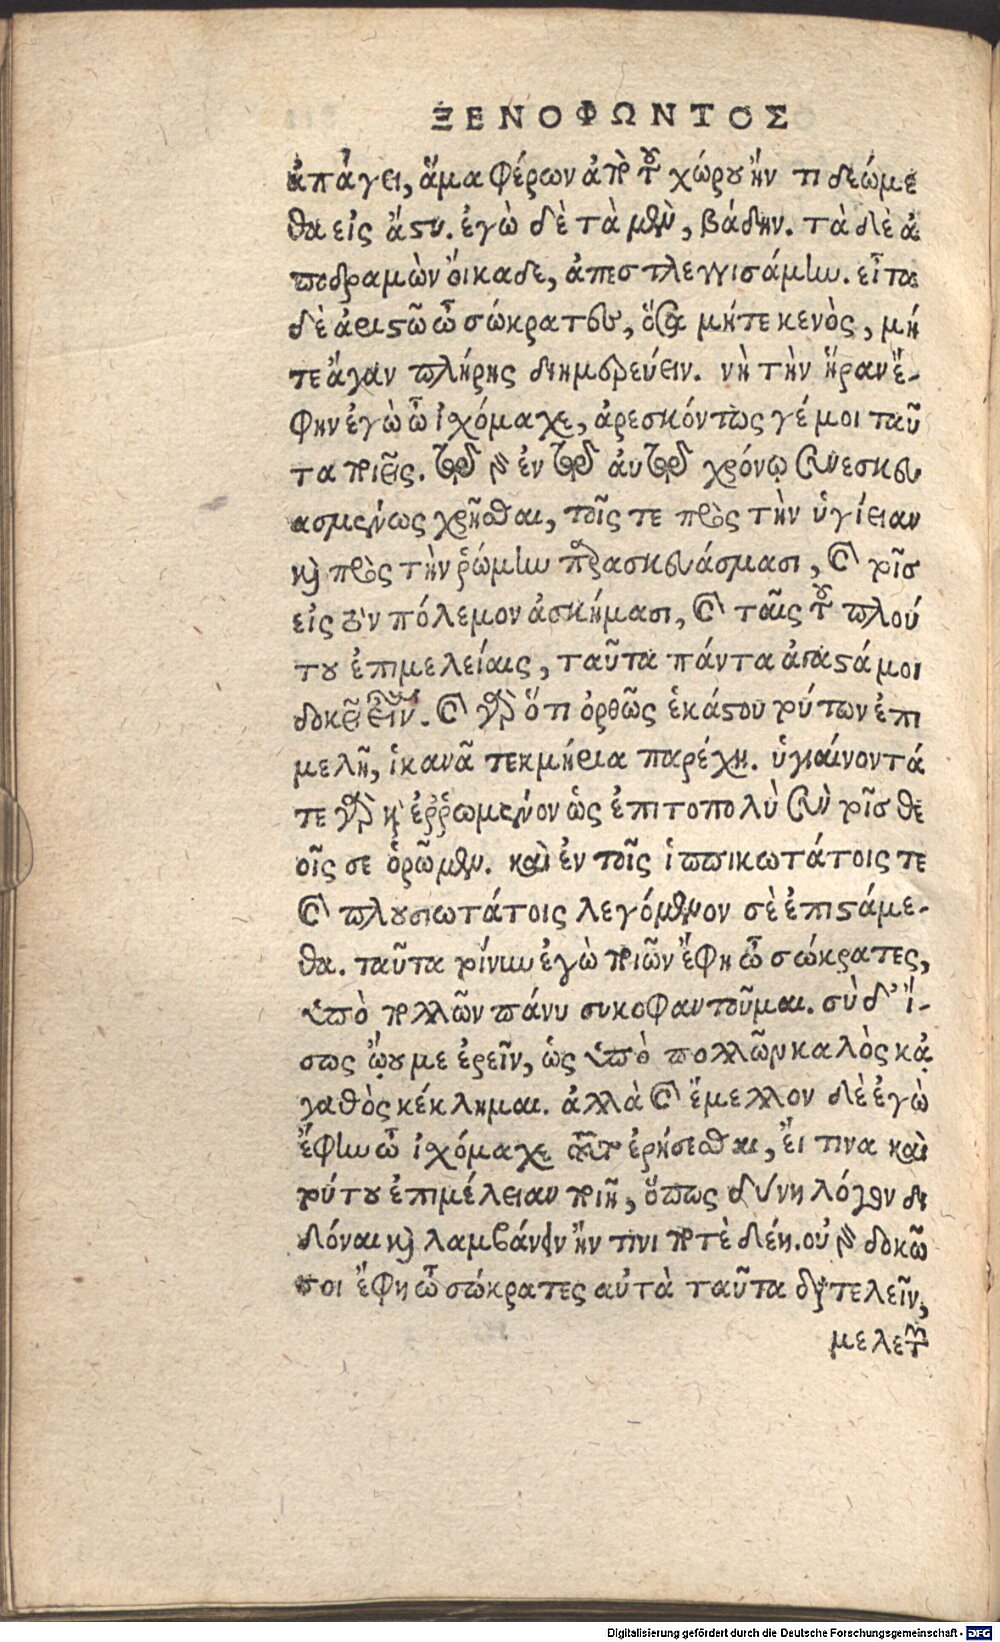 ΞΕΝΟΦΩΝΤΟΣ
ἀπάγει, ἅμα φέρων ἀπὸ τοῦ χώρου ἤν τι δεώμε
θα εἰς ἄστυ. ἐγὼ δὲ τὰ μὲν, βάδην. τὰ δὲ ἀ
ποδραμὼν ὄικαδε, ἀπεστλεγγισάμην. εἶτα
δὲ ἀριστῶ ὦ σώκρατες, ὅσα μήτε κενὸς, μή
τε ἄγαν πλήρης διημερεύειν. νὴ τὴν ἥραν ἔ-
φην ἐγὼ ὦ ἰχόμαχε, ἀρεσκόντως γέ μοι ταῦ
τα ποιεῖς. τῷ γὰρ ἐν τῷ αὐτῷ χρόνῳ συνεσκευ
ασμένως χρῆσθαι, τοῖς τε πρὸς τὴν ὑγίειαν
καὶ πρὸς τὴν ῥώμην παρασκευάσμασι, καὶ τοῖσ
εἰς τὸν πόλεμον ἀσκήμασι, καὶ ταῖς τοῦ πλού
του ἐπιμελείαις, ταῦτα πάντα ἀγαστά μοι
δοκεῖ εἶναι. καὶ γὰρ ὅτι ὀρθῶς ἑκάστου τούτων ἐπι
μελῆ, ἱκανᾶ τεκμήρια παρέχη. ὑγιαίνοντά
τε γὰρ καὶ ἐῤῥωμένον ὡς ἐπιτοπολὺ σὺν τοῖσ θε
οῖς σε ὁρῶμεν. καὶ ἐν τοῖς ἱππικωτάτοις τε
καὶ πλουσιωτάτοις λεγόμενον σὲ ἐπιστάμε-
θα. ταῦτα τοίνυν ἐγὼ ποιῶν ἔφη ὦ σώκρατες,
ὑπὸ πολλῶν πάνυ συκοφαντοῦμαι. σὺ δ' ἴ-
σως ᾤου με ἐρεῖν, ὡς ὑπὸ πολλῶν καλὸς κᾀ
γαθὸς κέκλημαι. ἀλλὰ καὶ ἔμελλον δὲ ἐγὼ
ἔφην ὦ ἰχόμαχε τοῦτο ἐρήσεσθαι, εἴ τινα καὶ
τούτου ἐπιμέλειαν ποιῇ, ὅπως δύνη λόγον δι
δόναι καὶ λαμβάνειν ἤν τινι ποτὲ δέη. οὐ γὰρ δοκῶ
σοι ἔφη ὦ σώκρατες αὐτὰ ταῦτα διατελεῖν,
μελετῶν